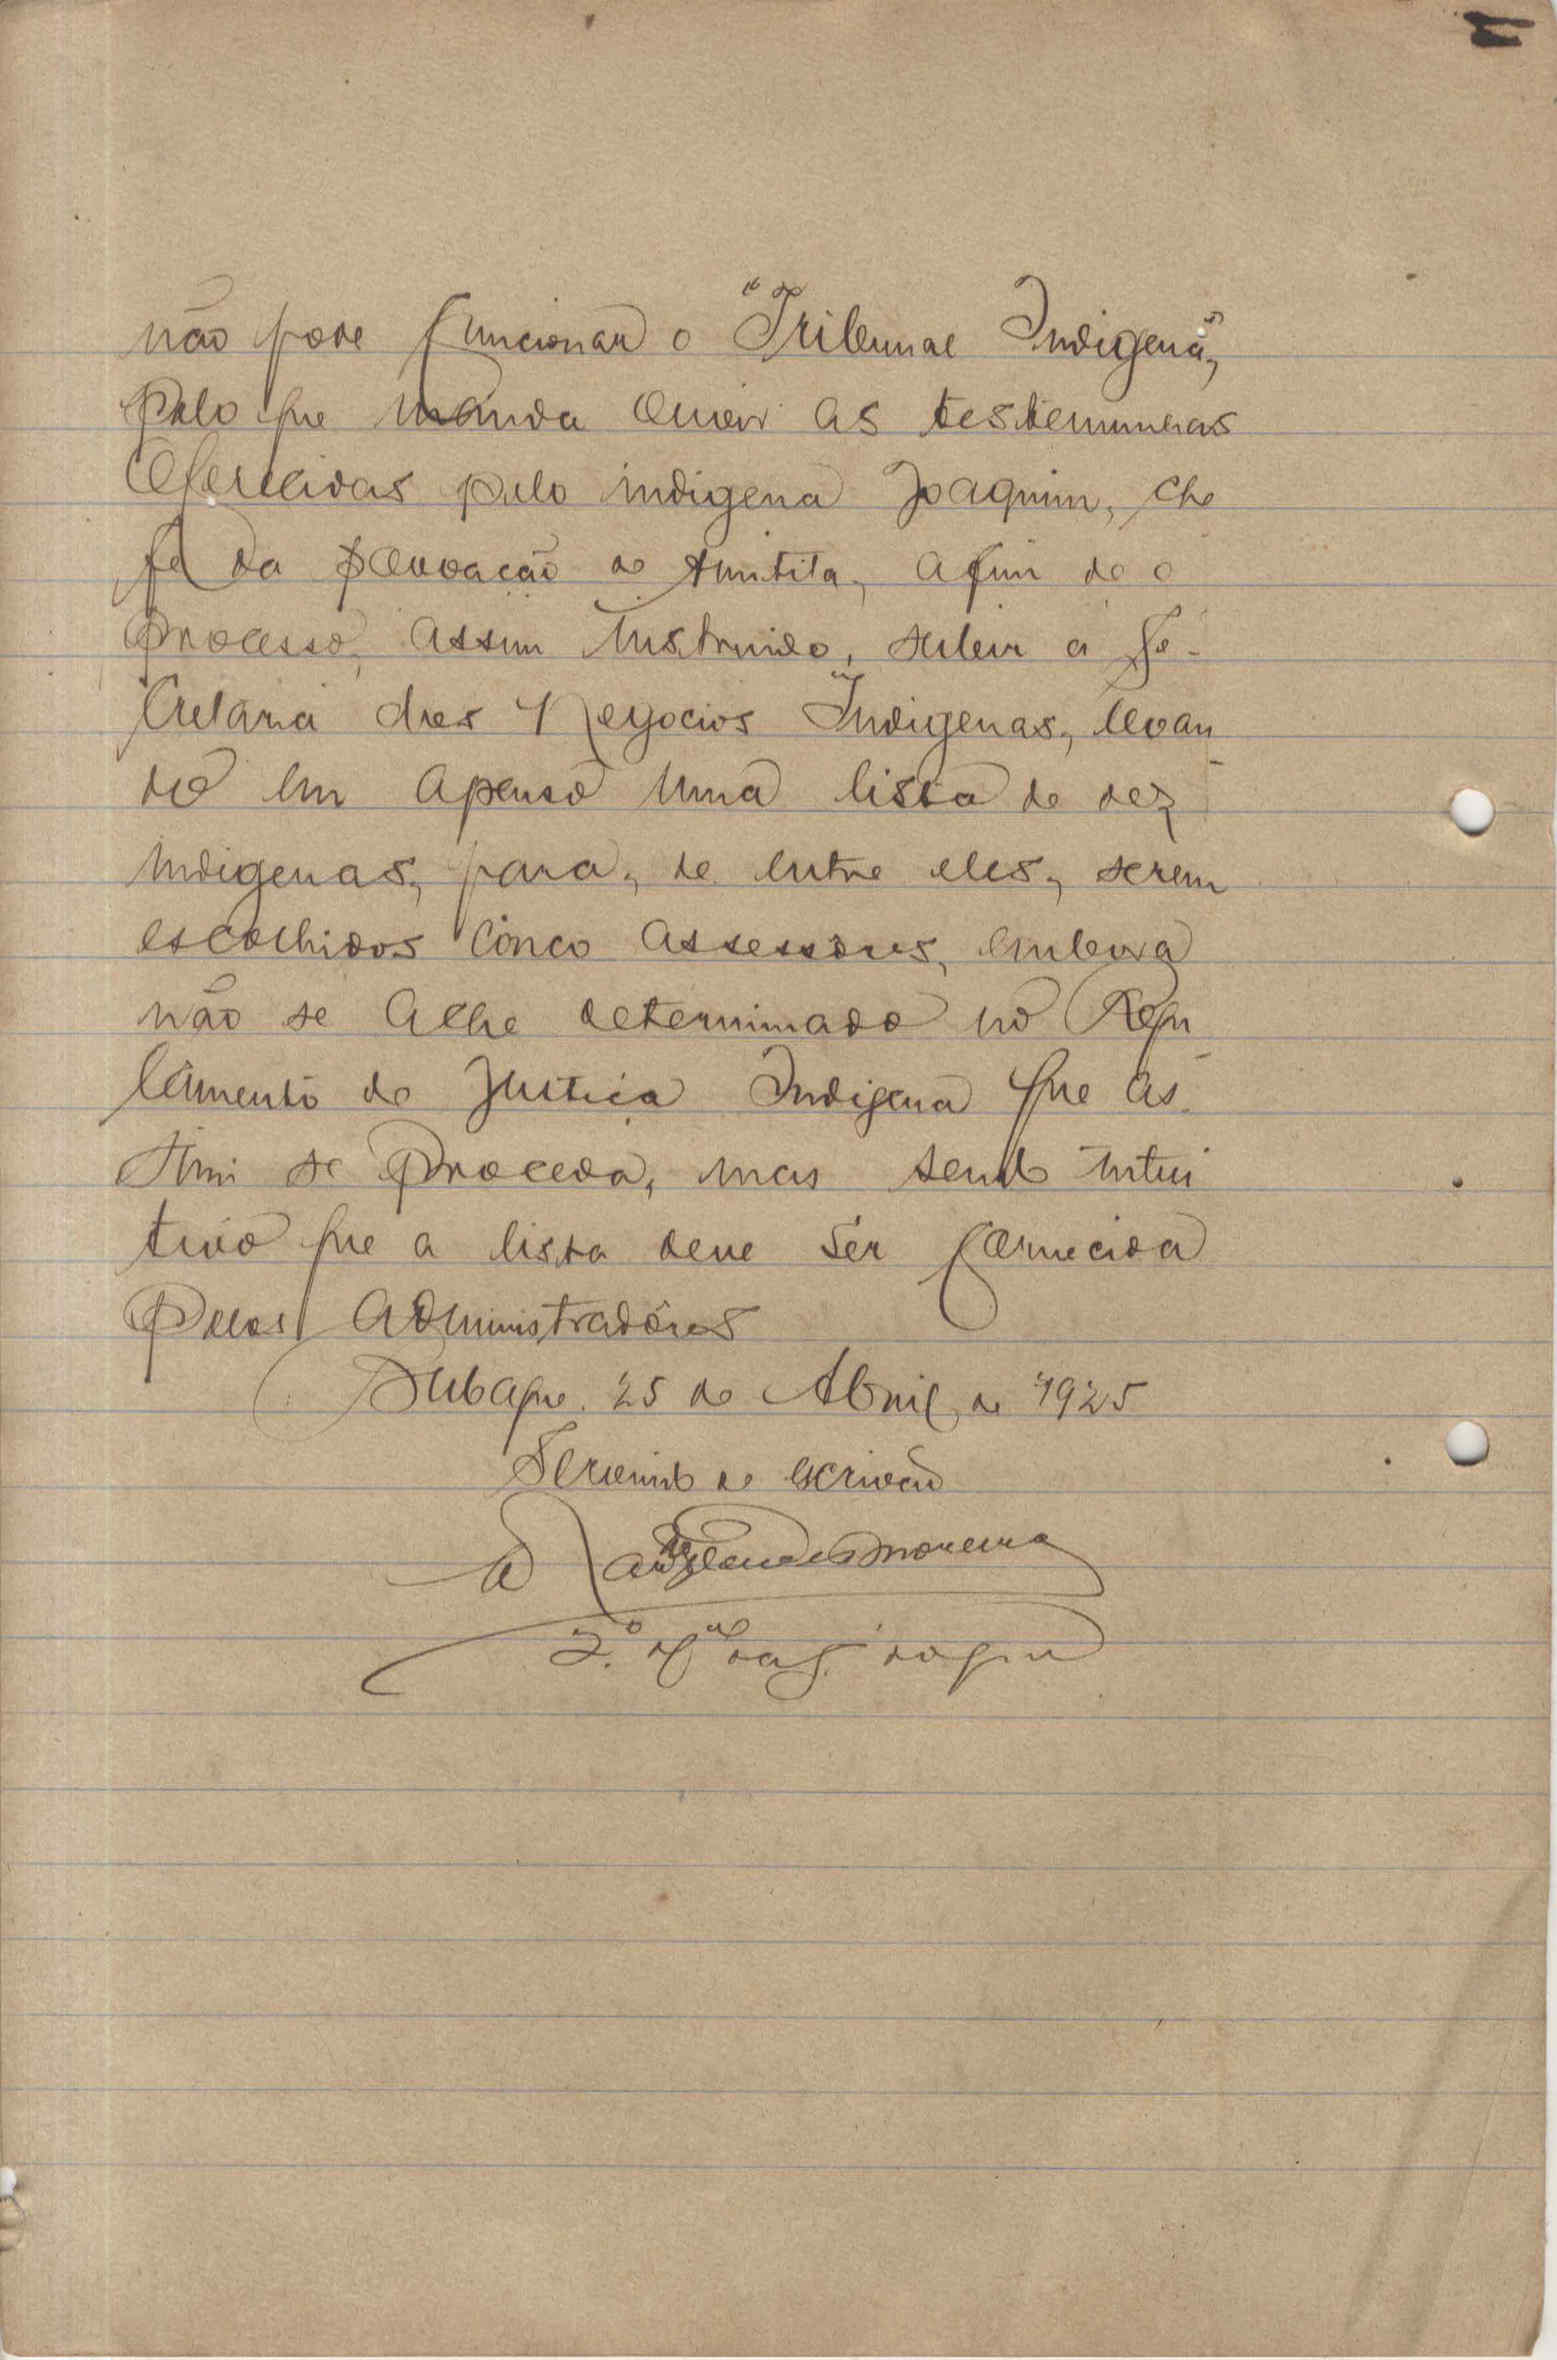 não pode funcionar o "Tribunal Indigena",
pelo que manda ouvir as testemunhas
oferecidas pelo indigena Joaquim, che
fe da povoação de
processo, assim instruido, subir a Se-
cretaria dos Negocios Indigenas, levan
do em apenso uma lista de dez
indigenas, para, de entre eles, serem
escolhidos cinco assessores, embora
não se ache determinado no Regu
lamento de Justiça Indigena que as-
sim se proceda, mas sendo intui
tivo que a lista deve ser fornecida
pelos administradôres
Bubaque. 25 de Abril de 1925
Servindo de escrivão
Moreira